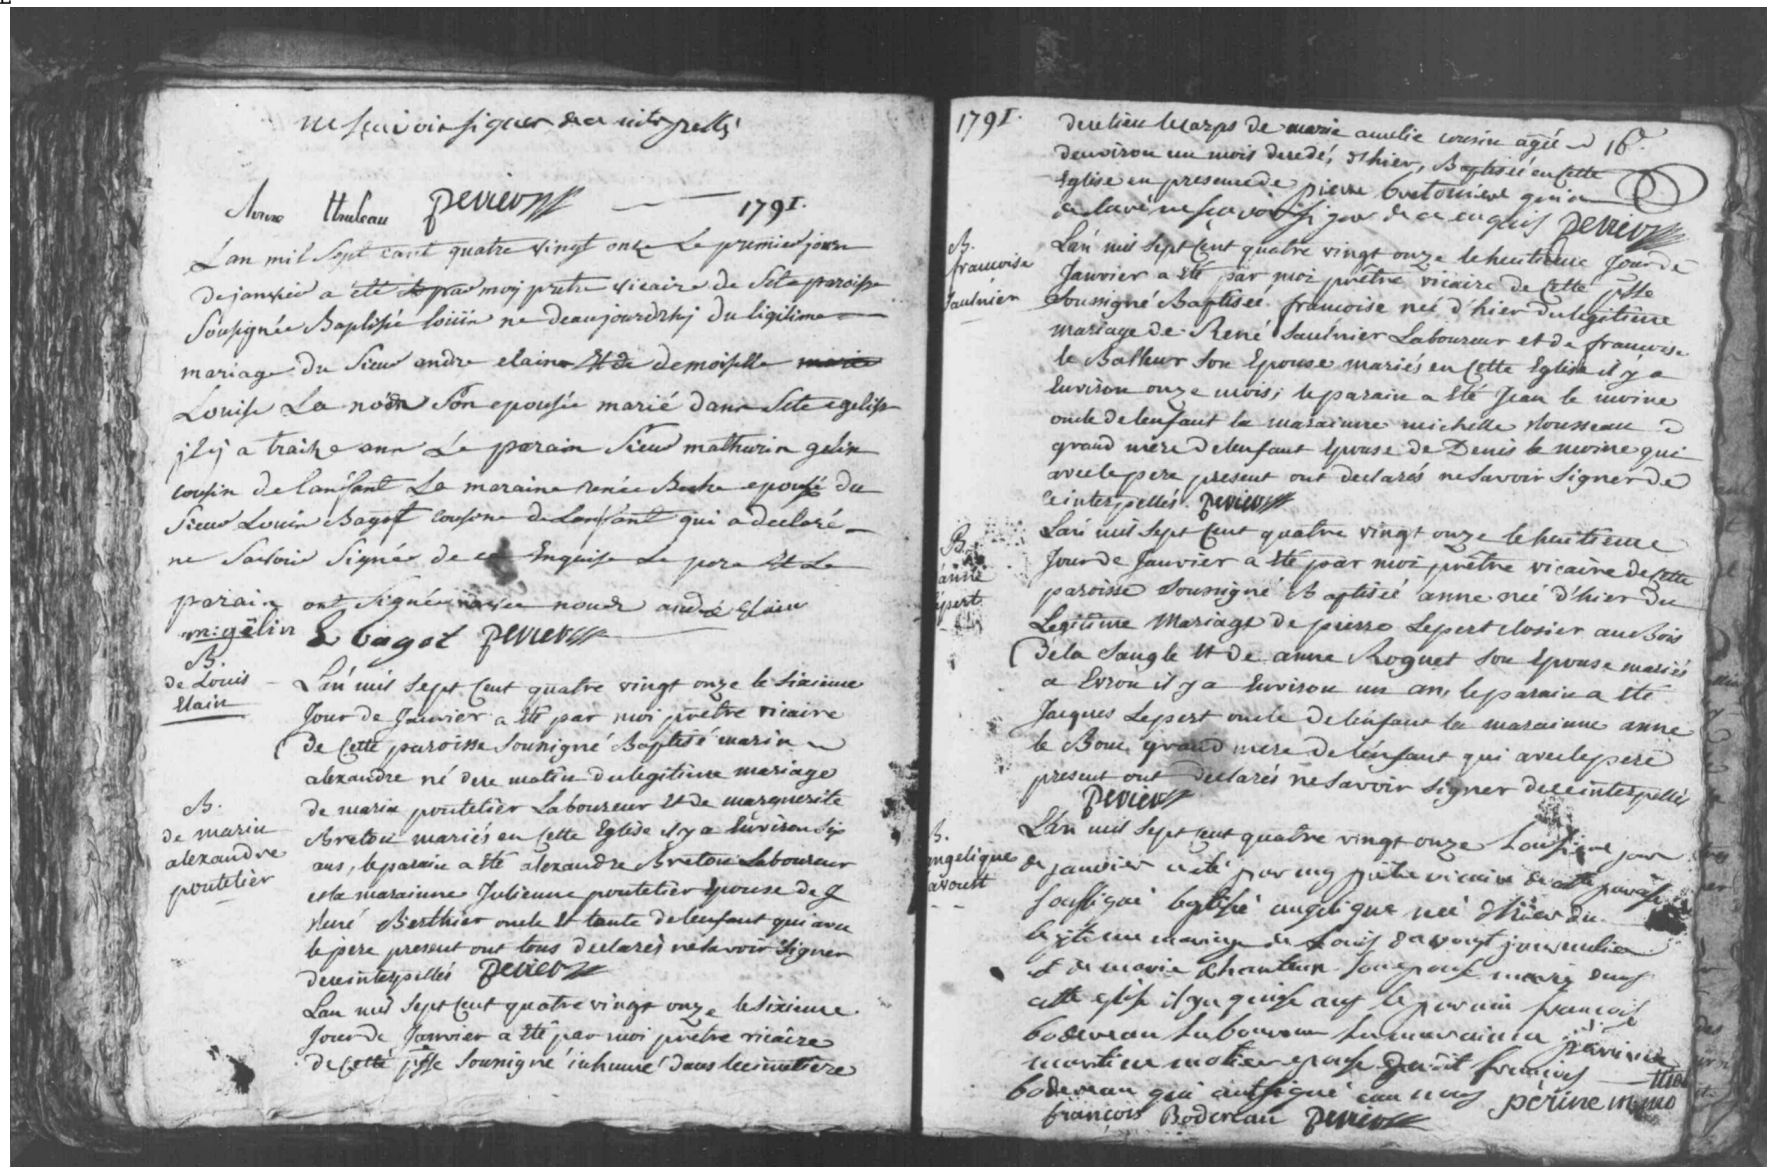 ne scavoir signer de ce interpellé
perier 1791.
L'an mil Sept cent quatre vingt onze Le premier jour
de janvier a eté par moy pretre vicaire de Sete paroisse
Sousignée Baptisée Loüin ne deaujourdhy du ligitime
mariage du Sieur andre elain Et de demoiselle marie
Louise La Son epousée marié dans Sete eglise
jl y a traize ans Le parain Sieur mathurin gelin
cousin de Lanfant La maraine renée epousé du
Sieur Louin Bagot cousine de Lanfant qui a declaré
ne Savoir Signée de ce Enquise Le pere Et Le
parain ont Signée avec nous andré Elain
m: gêlin L bagot perier
B.
de Louis
Elain
L'an mil sept Cent quatre vingt onze le sixieme
Jour de Janvier a Eté par moi prêtre vicaire
de Cette paroisse soussigné Baptisé marin
alexandre né de ce matin du legitime mariage
B.
de marin
alexandre
poutelier
de marin poutelier Laboureur Et de marguerite
Breton mariés en Cette Eglise il y a Environ six
ans, le parain a Eté alexandre Breton Laboureur
et la marainne Julienne poutelier Epouse de
René Berthier oncle Et tante de l'enfant qui avec
le pere present ont tous declarés ne savoir signer
de ce interpellés perier
L'an mil sept Cent quatre vingt onze le sixieme
Jour de Janvier a Eté par moi prêtre vicaire
de Cette psse soussigné inhumé dans le cimetiere
1791.
de ce lieu le corps de marie amelie cousin agée
d'environ un mois decedé, d'hier, Baptisée en Cette
Eglise en presence de pierre qui
a declaré ne scavoir signer de ce enquis perier
B.
francoise
Saulnier
L'an mil sept Cent quatre vingt onze le huitieme Jour de
Janvier a Eté par moi prêtre vicaire de Cette psse
soussigné Baptisée francoise née d'hier du legitime
mariage de René Saulnier Laboureur et de francoise
le Balleur son Epouse mariés en Cette Eglise il y a
Environ onze mois; le parain a Eté Jean le moine
oncle de l'enfant la marainne michelle Rousseau
grand mere de l'enfant Epouse de Denis le moine qui
avec le pere present ont declarés ne savoir signer de
ce interpellés perier
B.
anne
L'an mil sept Cent quatre vingt onze le huitieme
Jour de Janvier a Eté par moi prêtre vicaire de Cette
paroisse soussigné Baptisée anne née d'hier du
Legitime Mariage de pierre Lepert closier au Bois
de la Sangle Et de anne Roguet son Epouse mariés
a Evron il y a Environ un an, le parain a Eté
Jacques Lepert oncle de l'enfant la marainne anne
le Bouc grand mere de l'enfant qui avec le pere
present ont declarés ne savoir signer de ce interpellés
perier
B.
angelique
avoust
L'an mil sept cent quatre vingt onze L'onzieme jour
de janvier a eté par moy prêtre vicaire de cette paroisse
soussigné baptisé angelique née d'hier du
legitime mariage de Louis davoust journalier
et de marie chanteur son epouse mariés dans
cette eglise il y a quinze ans le parain francois
bodereau laboureur la marainne perrinne
martine motier epouse dudit francois
bodereau qui ont signé avec nous périne m: mo
françois Bodereau perier